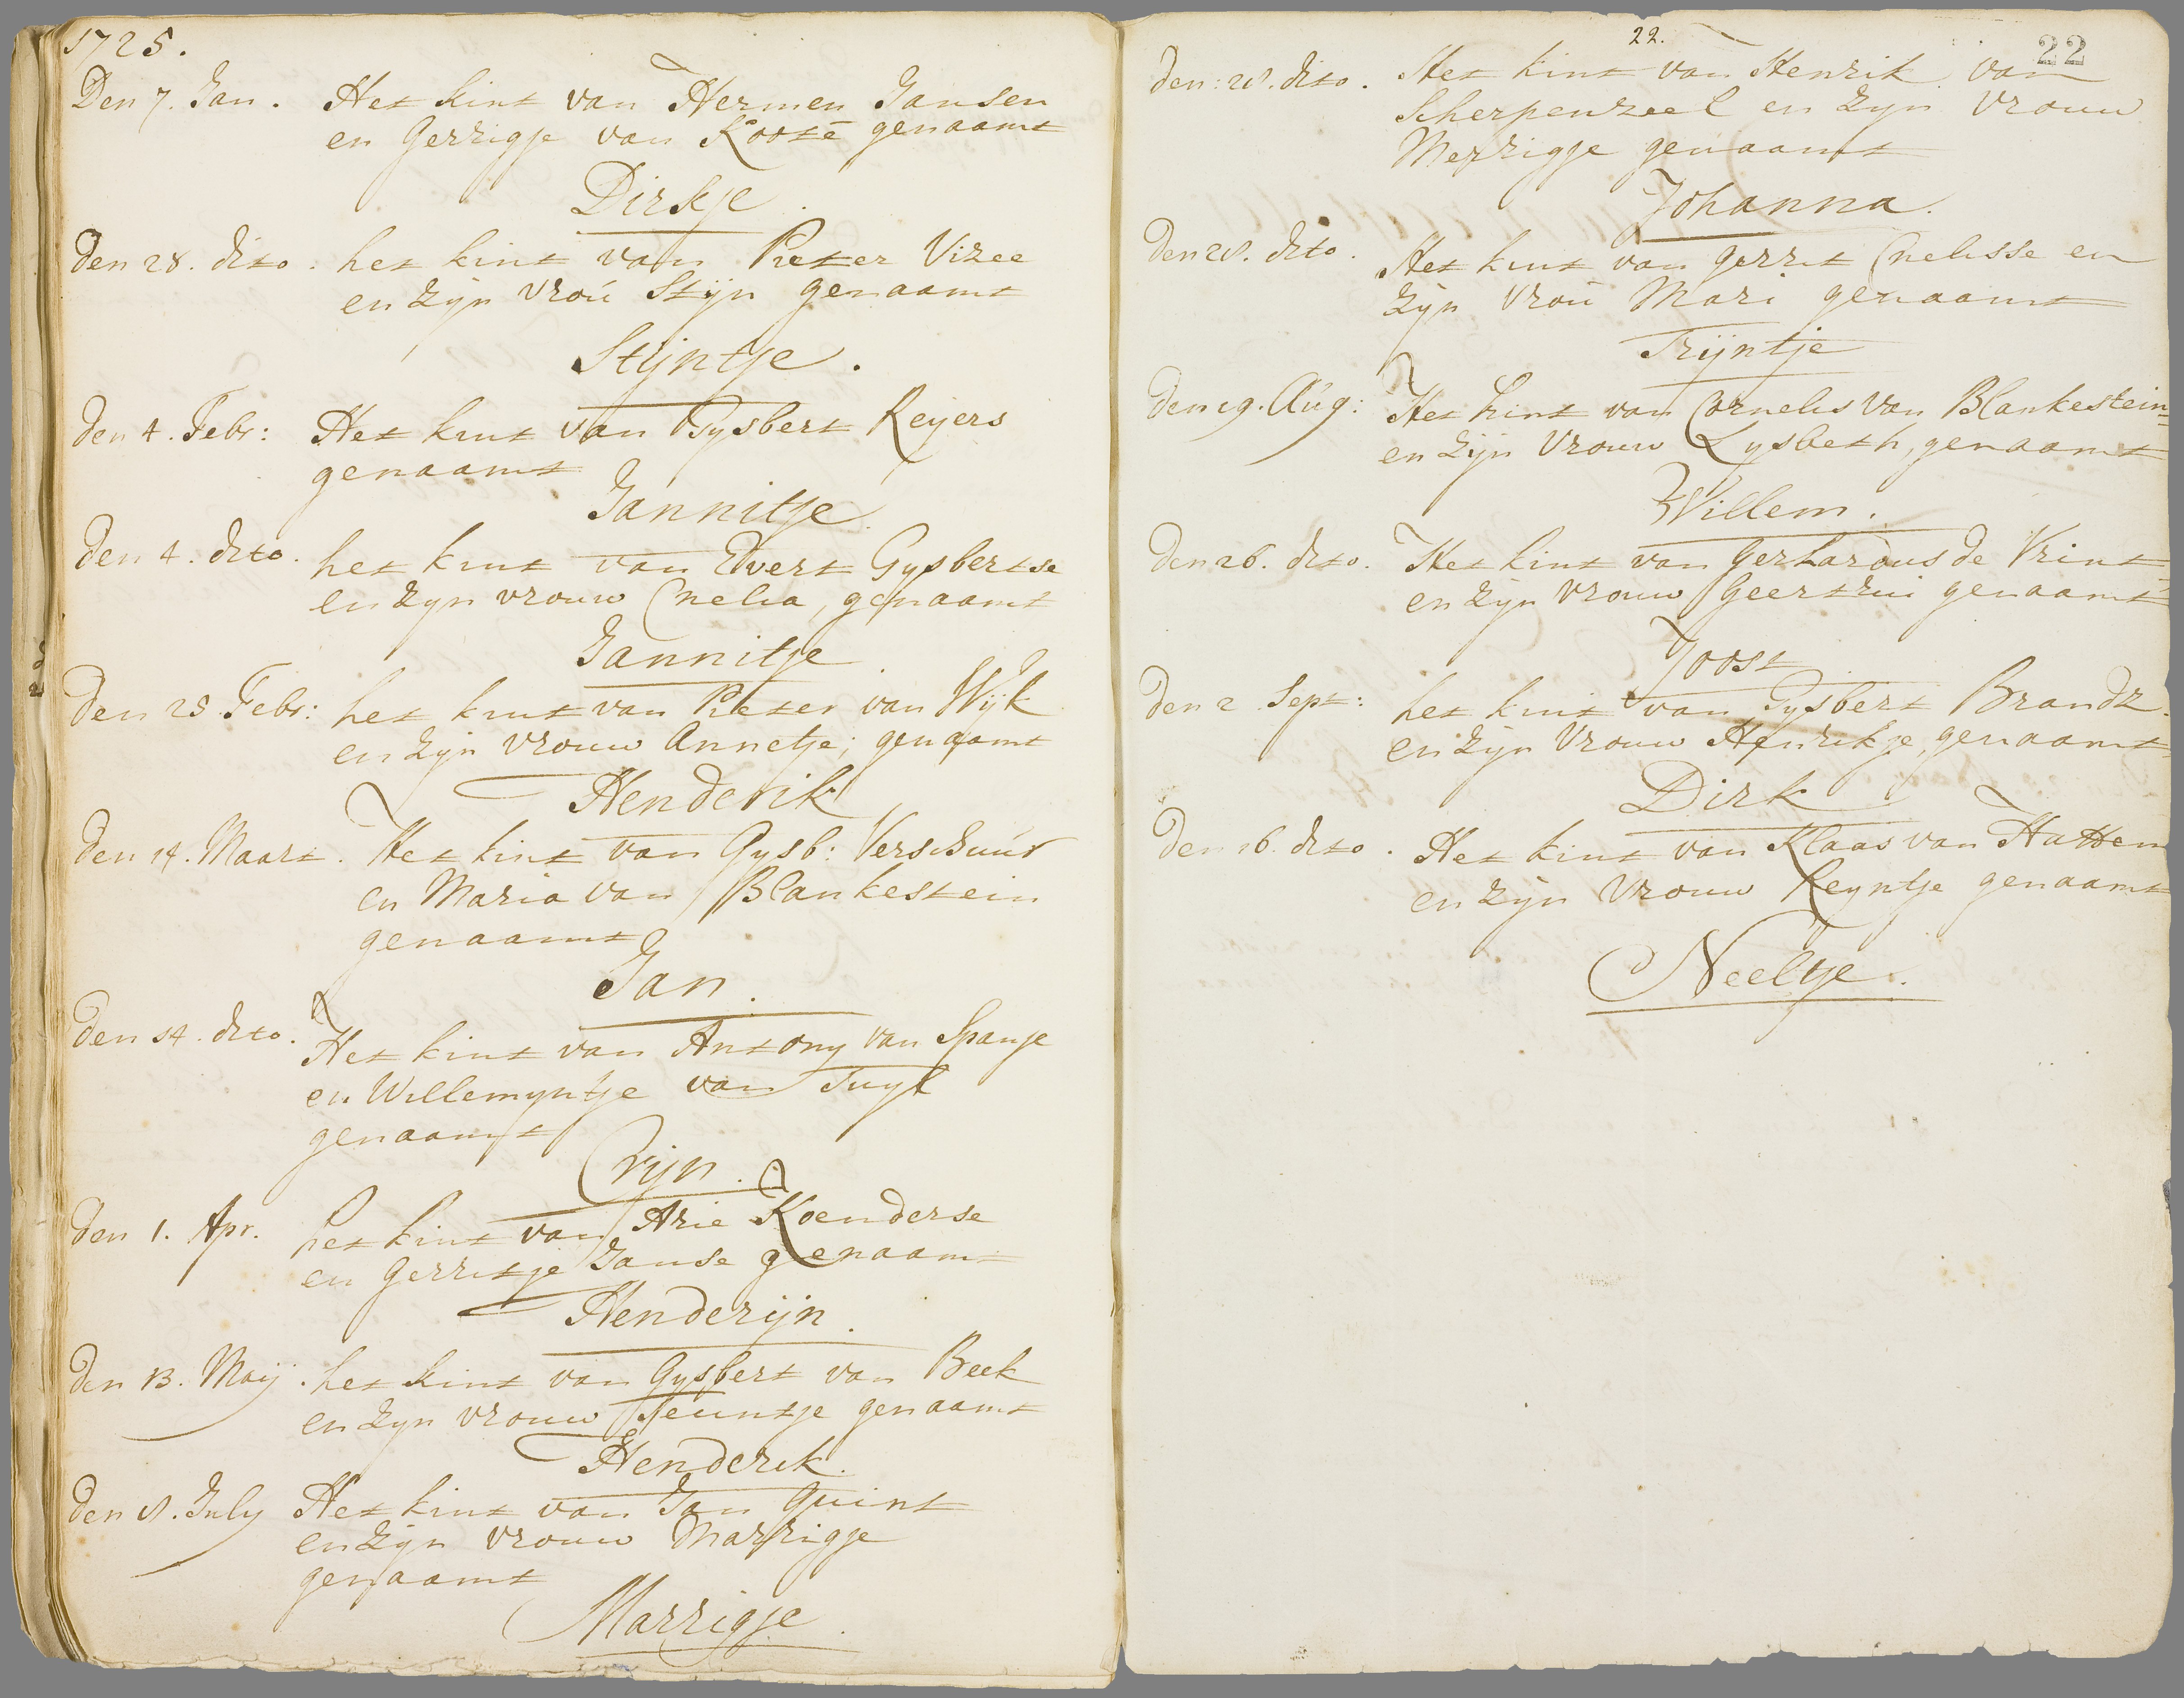 1725.
Den 7. Jan. Het kint van Hermen Jansen
en Gerrigje van Kooté genaamt
Dirkje.
den 28. dito. het kint van Pieter Vizee
en zijn vroú Stijn genaamt
Stijntje.
den 4. Febr: Het kint van Gysbert Reijers
genaamt
Jannitje.
den 4. dito. het kint van Evert Gysbertse
en zyn vrouw Cnelia, genaamt
Jannitje.
den 25 Febr: het kint van Pieter van Wijk
en zijn vrouw Annetje; genaamt
Henderik
den 14. Maart. Het kint van Gysb: Verschuúr
en Maria van Blankestein
genaamt
Jan.
den 14. dito. Het kint van Antony van Spanje
en Willemyntje van Tuyl
genaamt
Crijn.
den 1. Apr. het kint van Arie Koenderse
en Gerritje Janse genaamt
Henderijn.
den 13. Maij. het kint van Gysbert van Beek
en zyn vrouw Teuntje genaamt
Henderik.
den 8. July Het kint van Jan Quint
en zijn vrouw Marrigje
genaamt
Marrigje.
22.
22
den: 28. dito. Het kint van Henrik van
Scherpenzeel en zyn vrouw
Merrigje genaamt
Johanna.
den 28. dito. Het kint van Gerrit Cnelisse en
zijn vroú Mari genaamt
Trijntje
den 19. Aúg: Het kint van Cornelis van Blankestein
en zijn vrouw Lysbeth, genaamt
Willem.
den 26. dito. Het kint van Gerhardus de Vrint
en zijn vrouw Geertrui genaamt
Joost
den 2 Sept: het kint van Gysbert Brandz.
en zijn vrouw Henrikje, genaamt
Dirk
den 16. dito. Het kint van Klaas van Hattem
en zijn vrouw Reyntje genaamt
Neeltje.